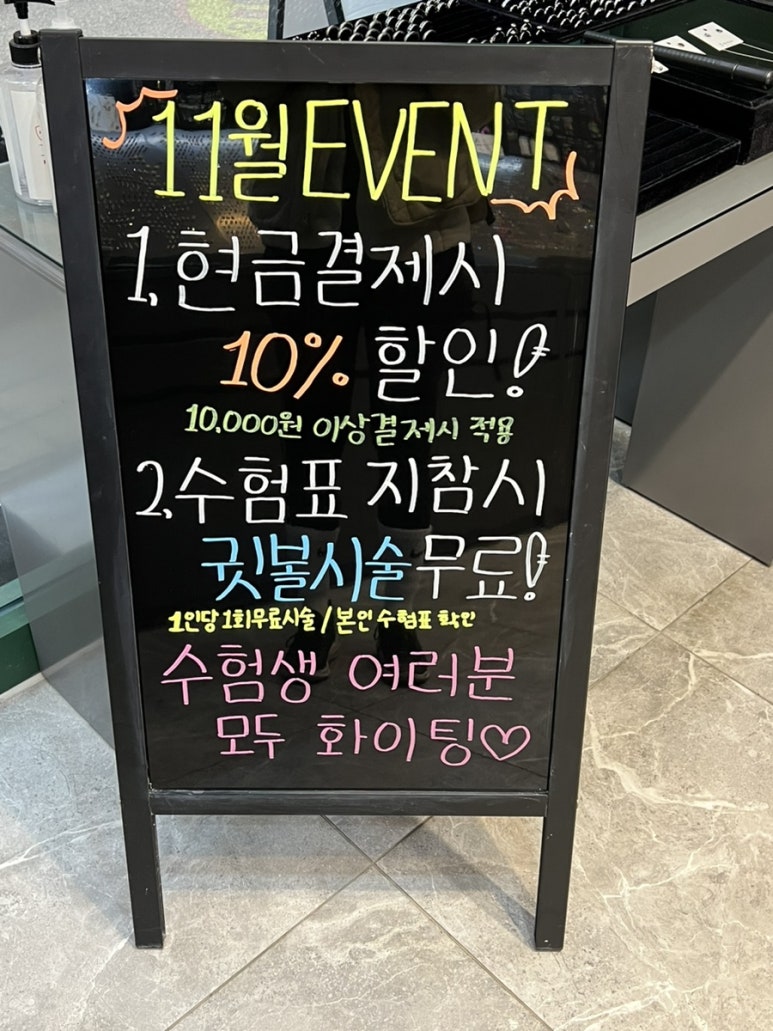 11월 EVENT
1. 현금결제시
10% 할인!
10,000원 이상결제시 적용
2. 수험표 지참시
귓볼시술무료!
1인당 1회무료시술 / 본인 수험표 확인
수험생 여러분
모두 화이팅♡